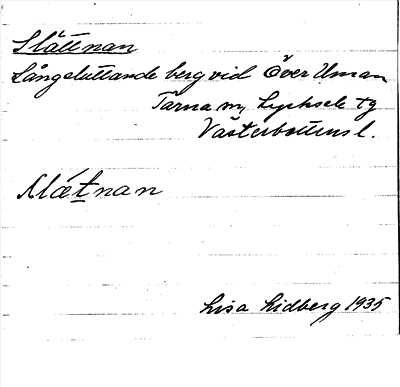 Slättnan
Långsluttande berg vid Över Uman
Tärna sn, Lycksele tg
Västerbottens l.
Slǽt̲nan
Lisa Lidberg 1935